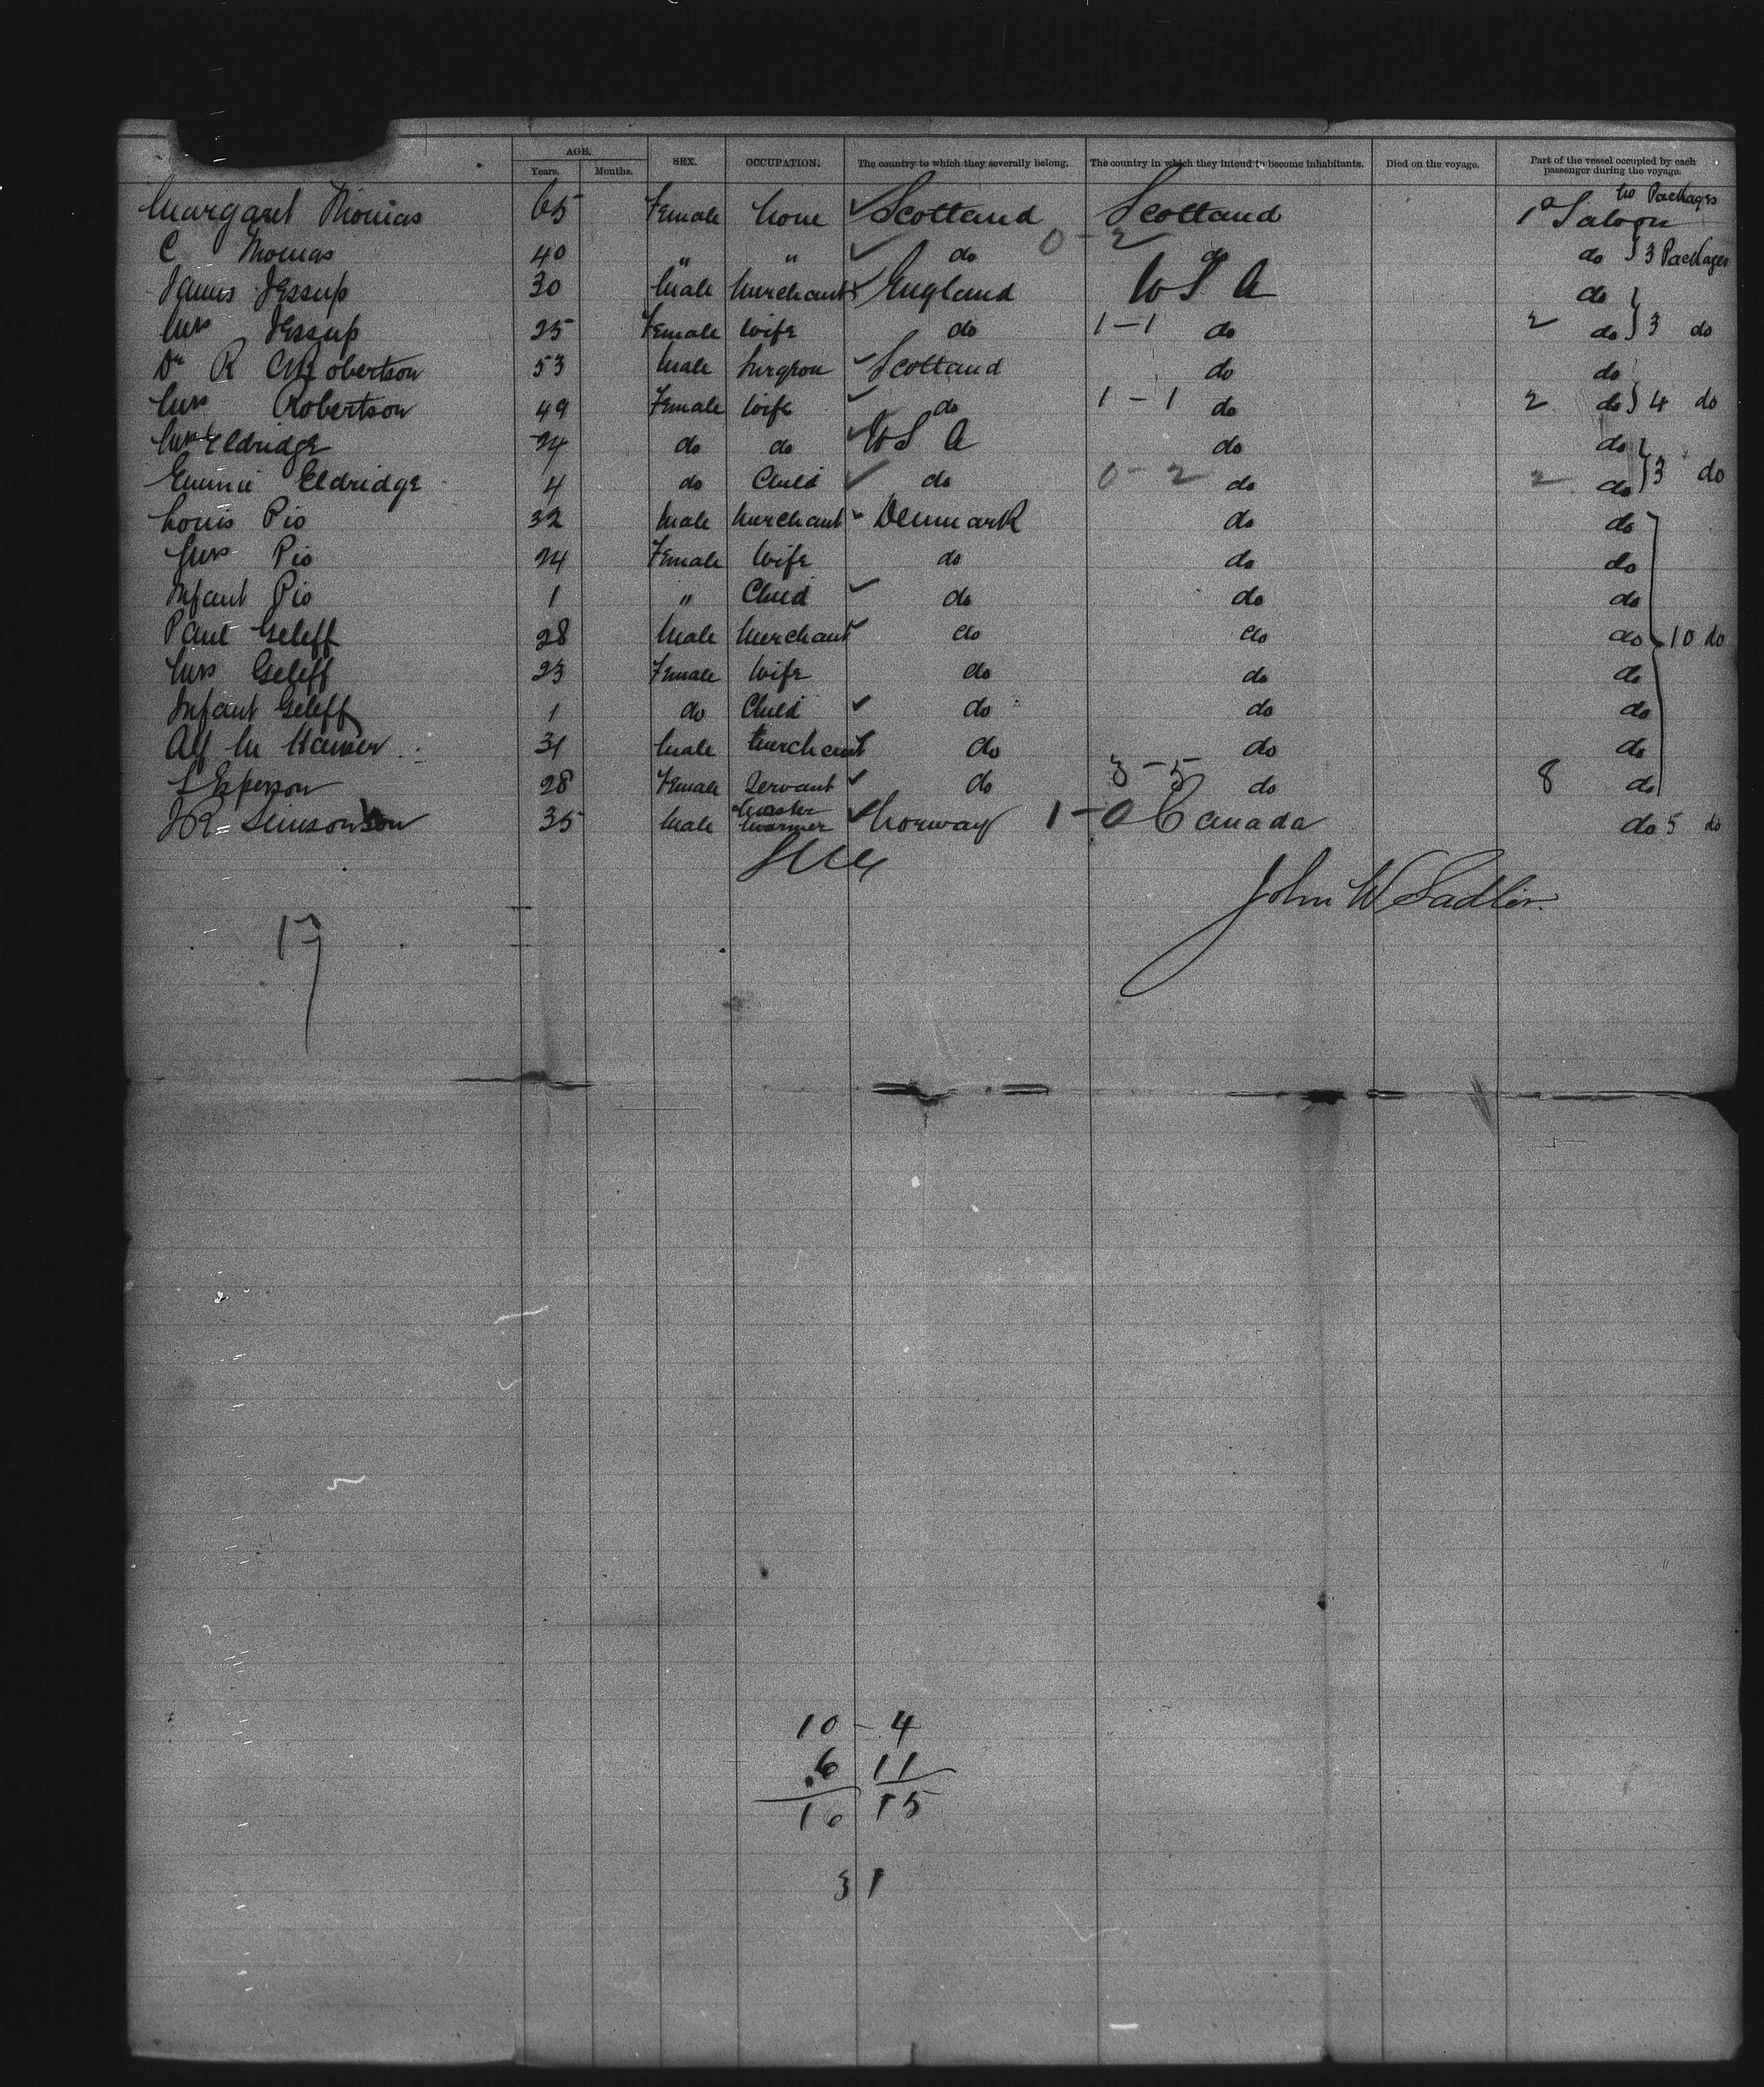 AGE.
Years. Months. SEX. OCCUPATION. The country to which they severally belong. The country in which they intend to become inhabitants. Died on the voyage. Part of the vessel occupied by each passenger during the voyage.
No Packages
Margaret Thomas 65 Female None Scotland Scotland 1st Saloon
0-2
C Thomas 40 " " do do do 3 Packages
James Jessup 30 Male Merchant England U S A do
Mrs Jessup 25 Female Wife do 1-1 do 2 do 3 do
Dr R C Robertson 53 Male Surgeon Scotland do do
Mrs Robertson 49 Female Wife do 1-1 do 2 do 4 do
Mrs Eldridge 24 do do U S A do do
Emmie Eldridge 4 do Child do 0-2 do 2 do 3 do
Louis Pio 32 Male Merchant Denmark do do
Mrs Pio 24 Female Wife do do do
Infant Pio 1 " Child do do do
Paul Geleff 28 Male Merchant do do do 10 do
Mrs Geleff 23 Female Wife do do do
Infant Geleff 1 do Child do do do
Alf M Hansen 31 Male Merchant do do do
3-5
L Esperson 28 Female Servant do do 8 do
J R Simsonson 35 Male Master Mariner Norway 1-0 Canada do 5 do
John W Sadler
17
10-4
6 11
16 15
31